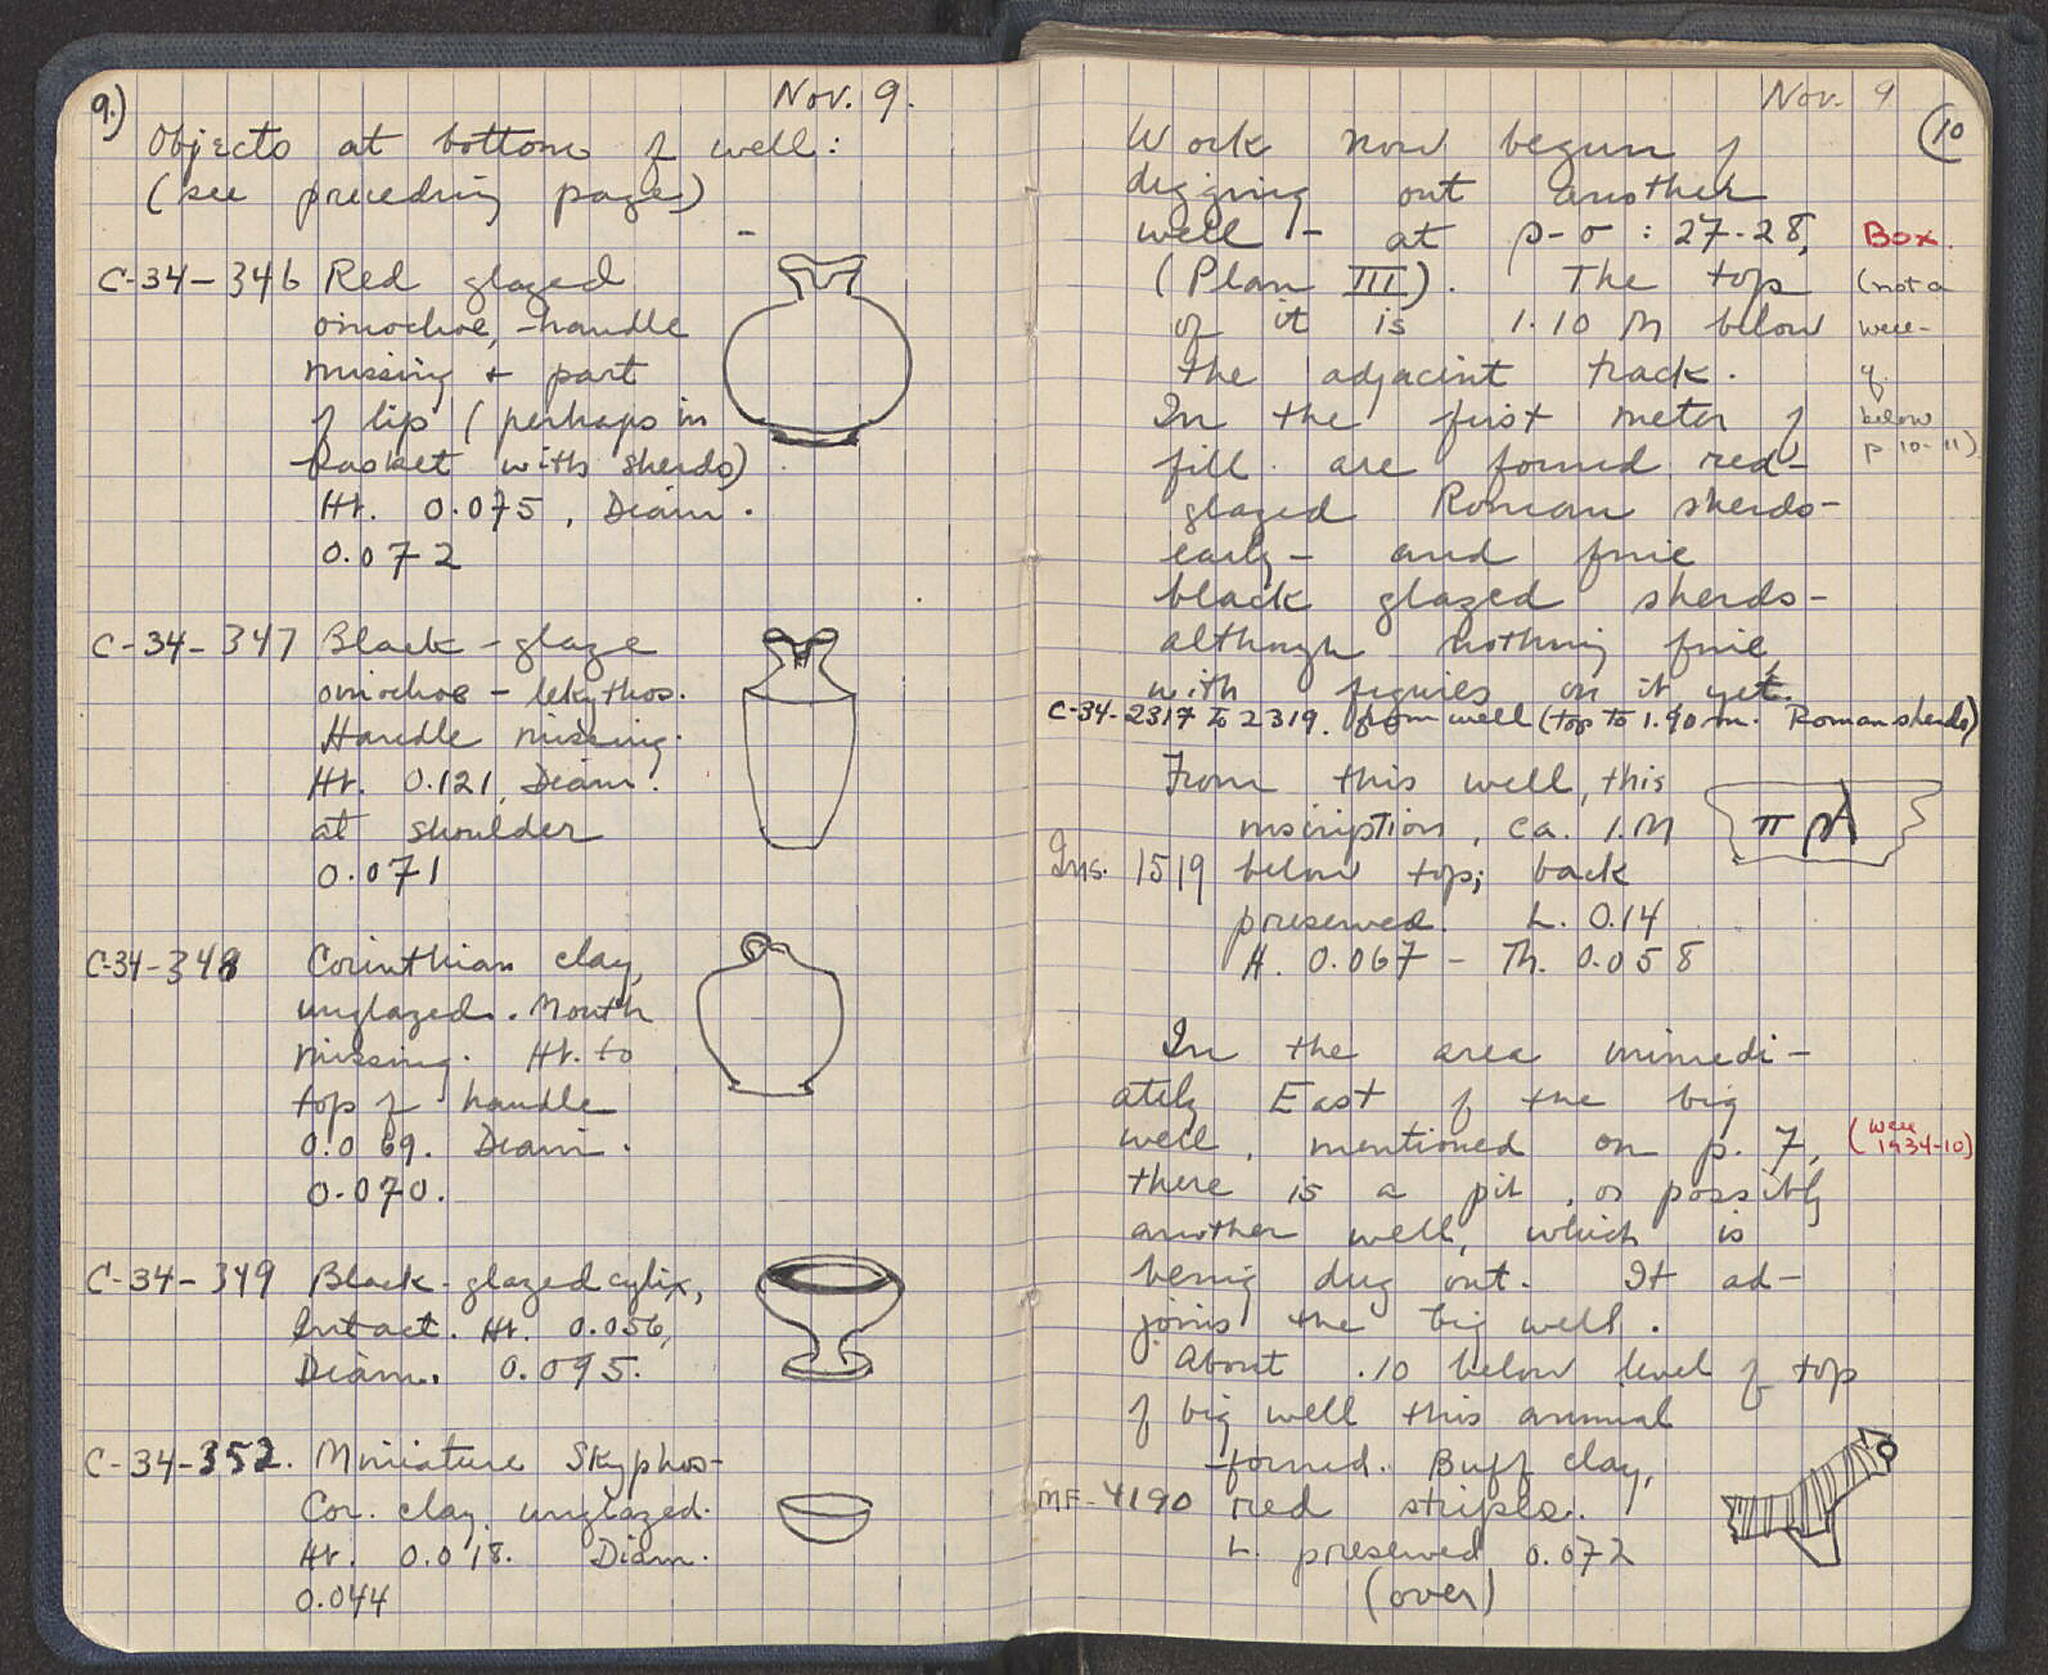 9.)
Nov. 9.
Objects at bottom of well:
(see preceding page)
C-34-346 Red glazed
oinochoe, -handle
missing + part
of lip (perhaps in
basket with sherds)
Ht. 0.075, Diam.
0.072
C-34-347 Black-glaze
oinochoe - lekythos.
Handle missing.
Ht. 0.121, Diam.
at shoulder
0.071
C-34-348 Corinthian clay,
unglazed. Mouth
missing. Ht. to
top of handle
0.069. Diam.
0.070.
C-34-349 Black-glazed cylix,
Intact. Ht. 0.056,
Diam. 0.095.
C-34-352. Miniature Skyphos-
Cor. clay unglazed.
Ht. 0.018. Diam.
0.044
Nov. 9
(10
Work now begun of
digging out another
well - at ρ-σ : 27-28,
(Plan III). The top
of it is 1.10 M below
the adjacent track.
In the first meter of
fill are found red-
glazed Roman sherds-
early - and fine
black glazed sherds-
although nothing fine,
with figures on it yet.
Box.
(not a
well-
cf.
below
p. 10-11)
C-34-2317 to 2319. from well (top to 1.90 m. Roman sherds)
From this well, this
inscription, ca. 1.M
Ins. 1519 below top; back
preserved. L. 0.14
H. 0.067 - Th. 0.058
In the area immedi-
ately East of the big
well, mentioned on p. 7, (well
1934-10)
there is a pit, or possibly
another well, which is
being dug out. It ad-
joins the big well.
About .10 below level of top
of big well this animal
found. Buff clay,
MF-4190 red stripes.
L. preserved 0.072
(over)